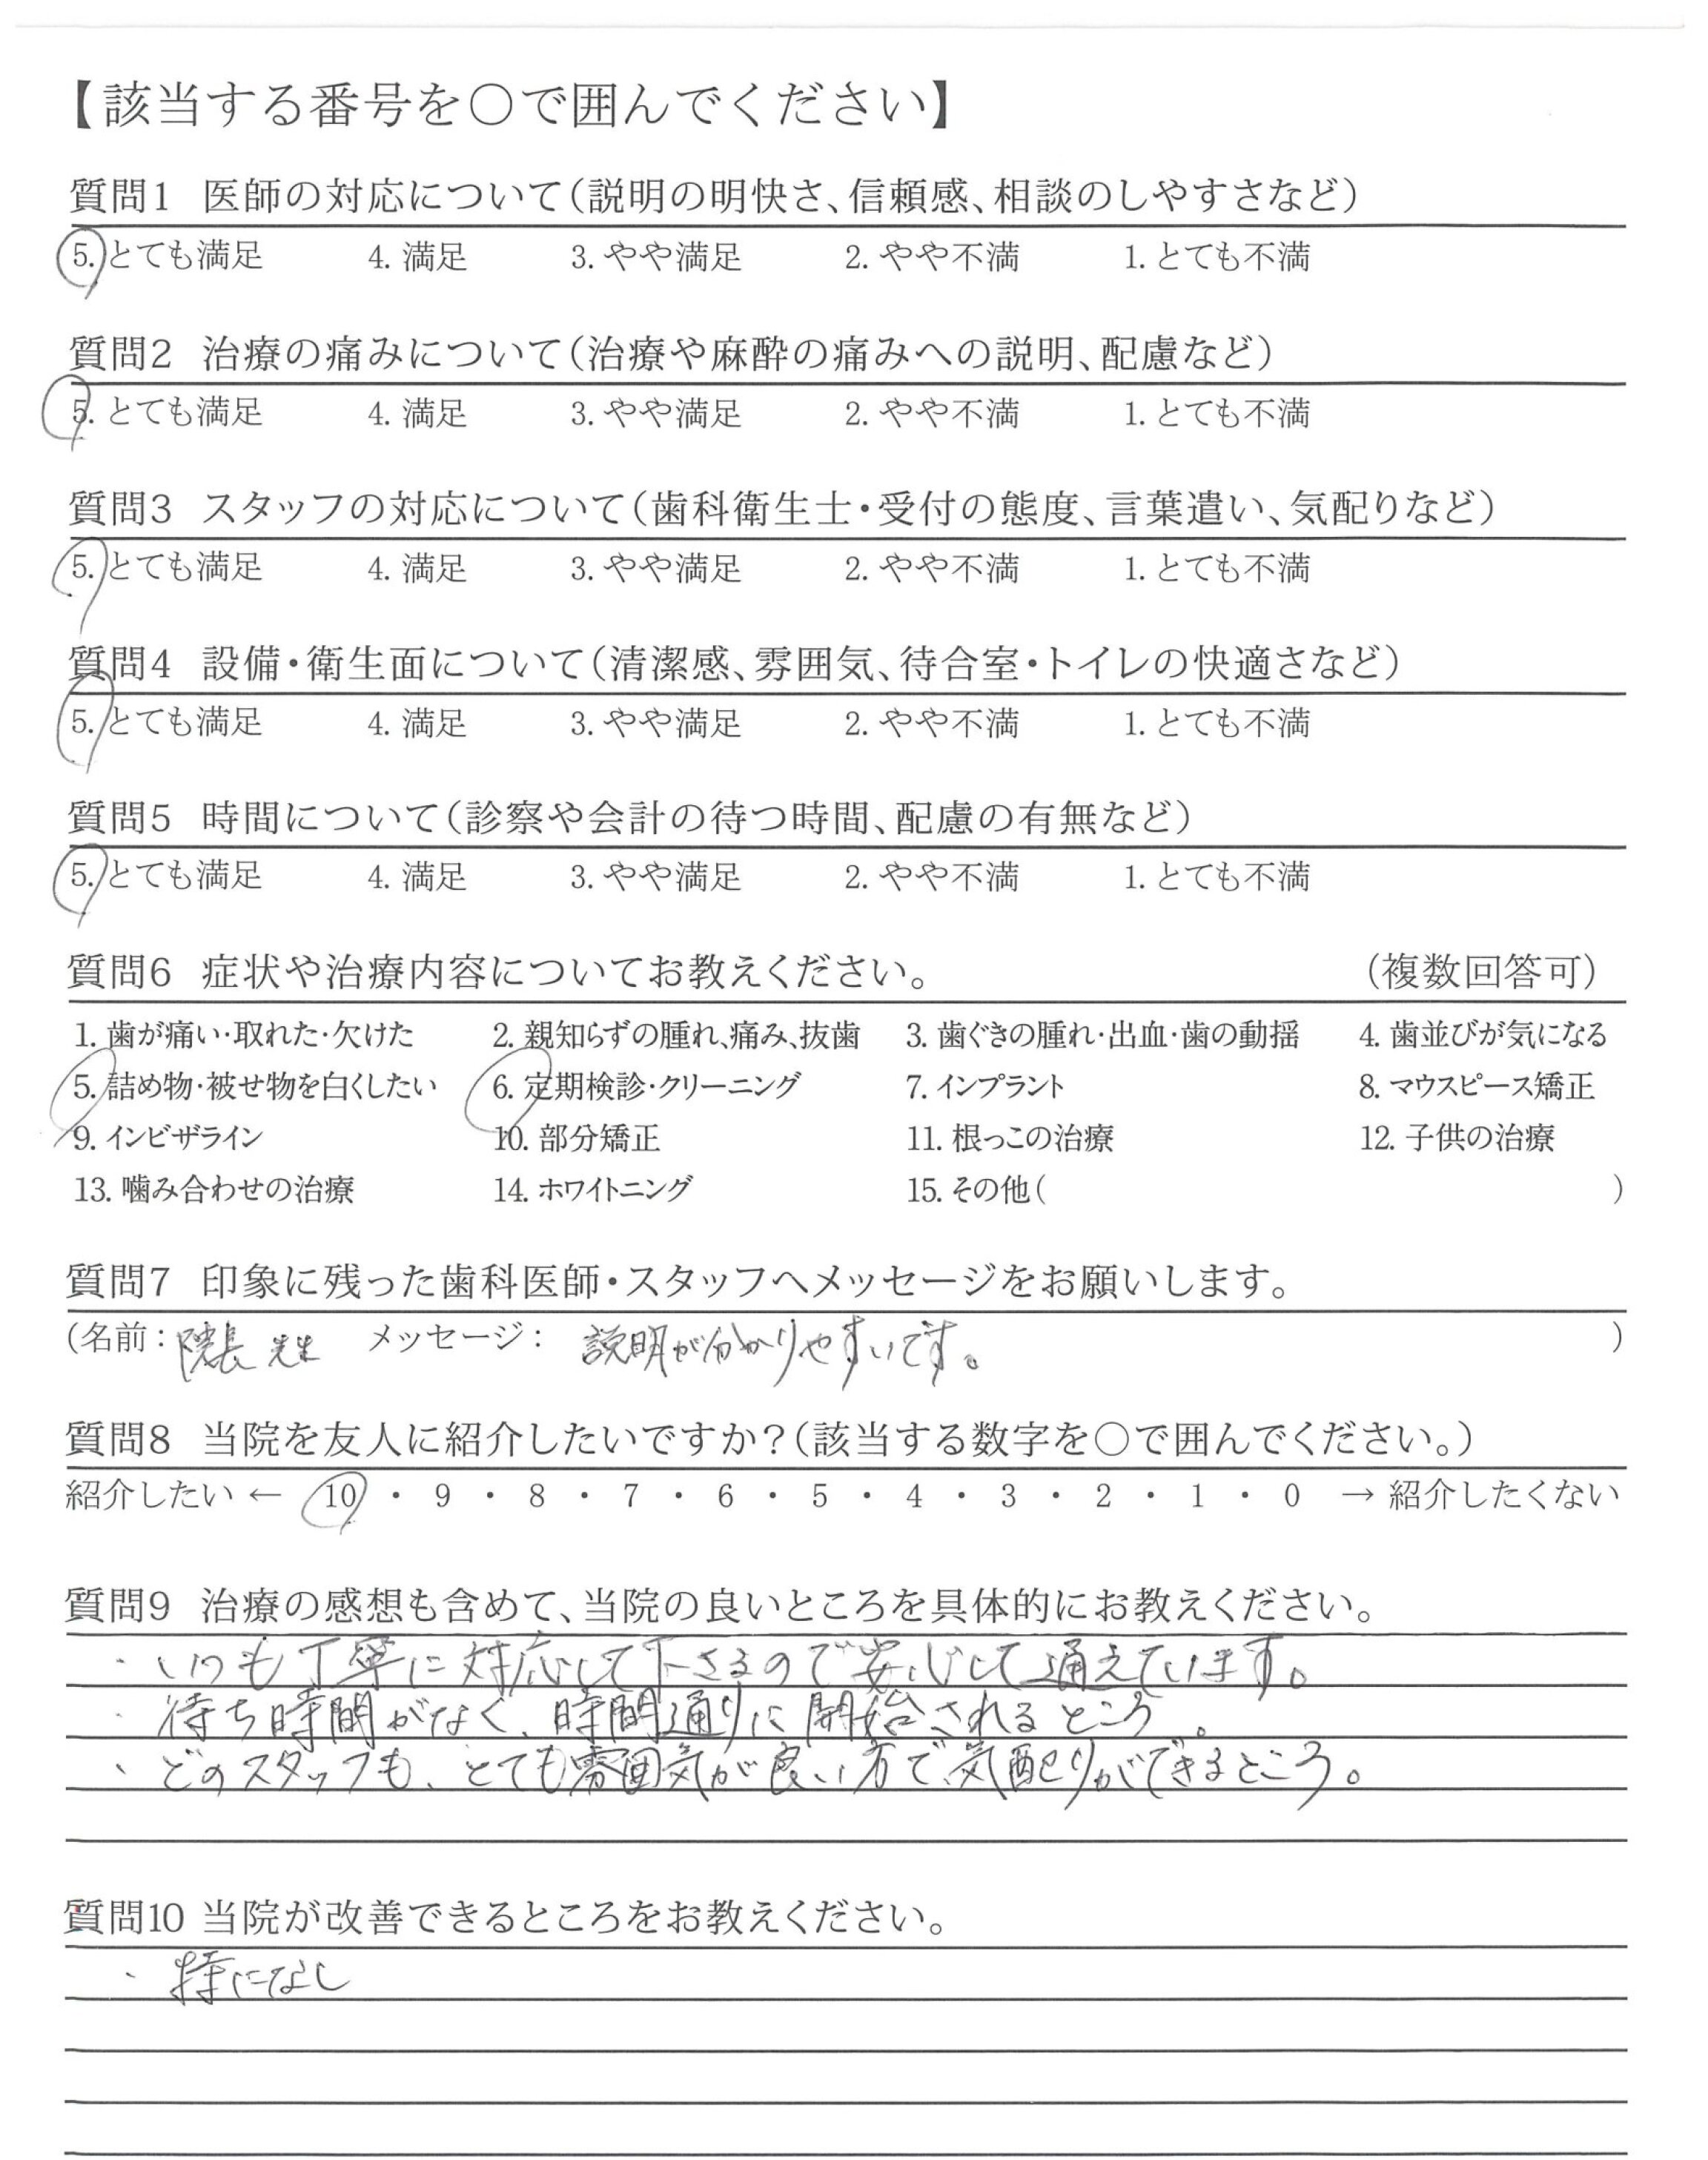 【該当する番号を○で囲んでください】
質問1 医師の対応について(説明の明快さ、信頼感、相談のしやすさなど)
5. とても満足 4. 満足 3. やや満足 2. やや不満 1. とても不満
質問2 治療の痛みについて(治療や麻酔の痛みへの説明、配慮など)
5. とても満足 4. 満足 3. やや満足 2. やや不満 1. とても不満
質問3 スタッフの対応について(歯科衛生士・受付の態度、言葉遣い、気配りなど)
5. とても満足 4. 満足 3. やや満足 2. やや不満 1. とても不満
質問4 設備・衛生面について(清潔感、雰囲気、待合室・トイレの快適さなど)
5. とても満足 4. 満足 3. やや満足 2. やや不満 1. とても不満
質問5 時間について(診察や会計の待つ時間、配慮の有無など)
5. とても満足 4. 満足 3. やや満足 2. やや不満 1. とても不満
質問6 症状や治療内容についてお教えください。 (複数回答可)
1. 歯が痛い・取れた・欠けた 2. 親知らずの腫れ、痛み、抜歯 3. 歯ぐきの腫れ・出血・歯の動揺 4. 歯並びが気になる
5. 詰め物・被せ物を白くしたい 6. 定期検診・クリーニング 7. インプラント 8. マウスピース矯正
9. インビザライン 10. 部分矯正 11. 根っこの治療 12. 子供の治療
13. 噛み合わせの治療 14. ホワイトニング 15. その他( )
質問7 印象に残った歯科医師・スタッフへメッセージをお願いします。
(名前: 院長先生 メッセージ: 説明が分かりやすいです。 )
質問8 当院を友人に紹介したいですか?(該当する数字を○で囲んでください。)
紹介したい ← 10 ・ 9 ・ 8 ・ 7 ・ 6 ・ 5 ・ 4 ・ 3 ・ 2 ・ 1 ・ 0 → 紹介したくない
質問9 治療の感想も含めて、当院の良いところを具体的にお教えください。
・いつも丁寧に対応して下さるので安心して通えています。
・待ち時間がなく、時間通りに開始されるところ。
・どのスタッフも、とても雰囲気が良い方で、気配りができるところ。
質問10 当院が改善できるところをお教えください。
・特になし